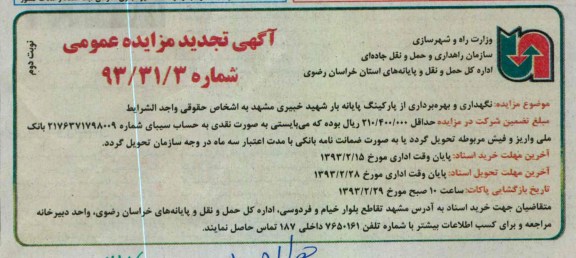 وزارت راه و شهرسازی
سازمان راهداری و حمل و نقل جاده‌ای
اداره کل حمل و نقل و پایانه‌های استان خراسان رضوی
آگهی تجدید مزایده عمومی
شماره ۹۳/۳۱/۳
نوبت دوم
موضوع مزایده: نگهداری و بهره‌برداری از پارکینگ پایانه بار شهید خبیری مشهد به اشخاص حقوقی واجد الشرایط
مبلغ تضمین شرکت در مزایده حداقل ۲۱۰/۴۰۰/۰۰۰ ریال بوده که می‌بایستی به صورت نقدی به حساب سیبای شماره ۲۱۷۶۳۷۱۷۹۸۰۰۹ بانک
ملی واریز و فیش مربوطه تحویل گردد یا به صورت ضمانت نامه بانکی با مدت اعتبار سه ماه در وجه سازمان تحویل گردد.
آخرین مهلت خرید اسناد: پایان وقت اداری مورخ ۱۳۹۳/۲/۱۵
آخرین مهلت تحویل اسناد: پایان وقت اداری مورخ ۱۳۹۳/۲/۲۸
تاریخ بازگشایی پاکات: ساعت ۱۰ صبح مورخ ۱۳۹۳/۲/۲۹
متقاضیان جهت خرید اسناد به آدرس مشهد تقاطع بلوار خیام و فردوسی، اداره کل حمل و نقل و پایانه‌های خراسان رضوی، واحد دبیرخانه
مراجعه و برای کسب اطلاعات بیشتر با شماره تلفن ۷۶۵۰۱۶۱ داخلی ۱۸۷ تماس حاصل نمایند.